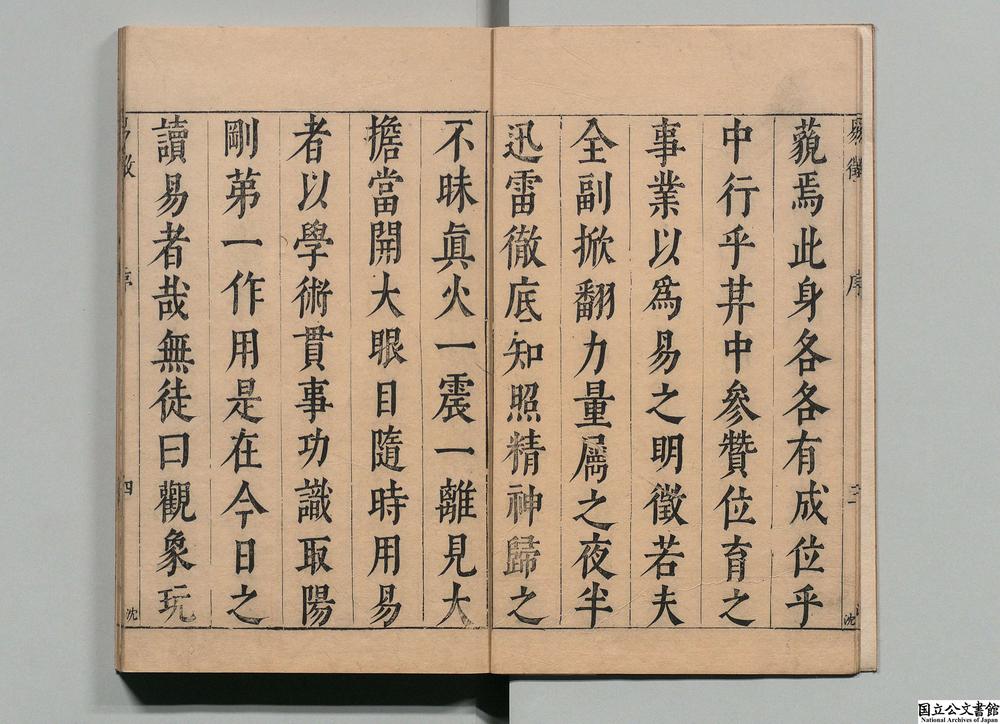 藐焉此身各各有成位乎
中行乎其中參贊位育之
事業以爲易之明徵若夫
全副掀翻力量屬之夜半
迅雷徹底知照精神歸之
不昧眞火一震一離見大
擔當開大眼目隨時用易
者以學術貫事功識取陽
剛第一作用是在今日之
讀易者哉無徒曰觀象玩
序
四
沈
沈
国立公文書館
National Archives of Japan